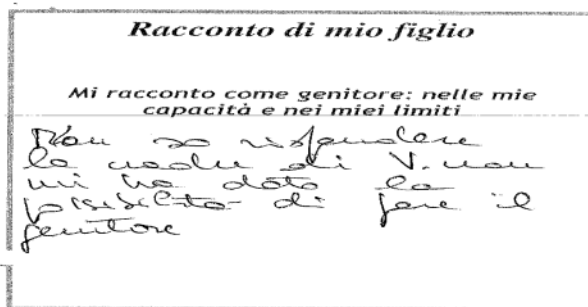 Racconto di mio figlio
Mi racconto come genitore: nelle mie
capacità e nei miei limiti
Non so rispondere
la madre di V. non
mi ha dato la
possibilità di fare il
genitore